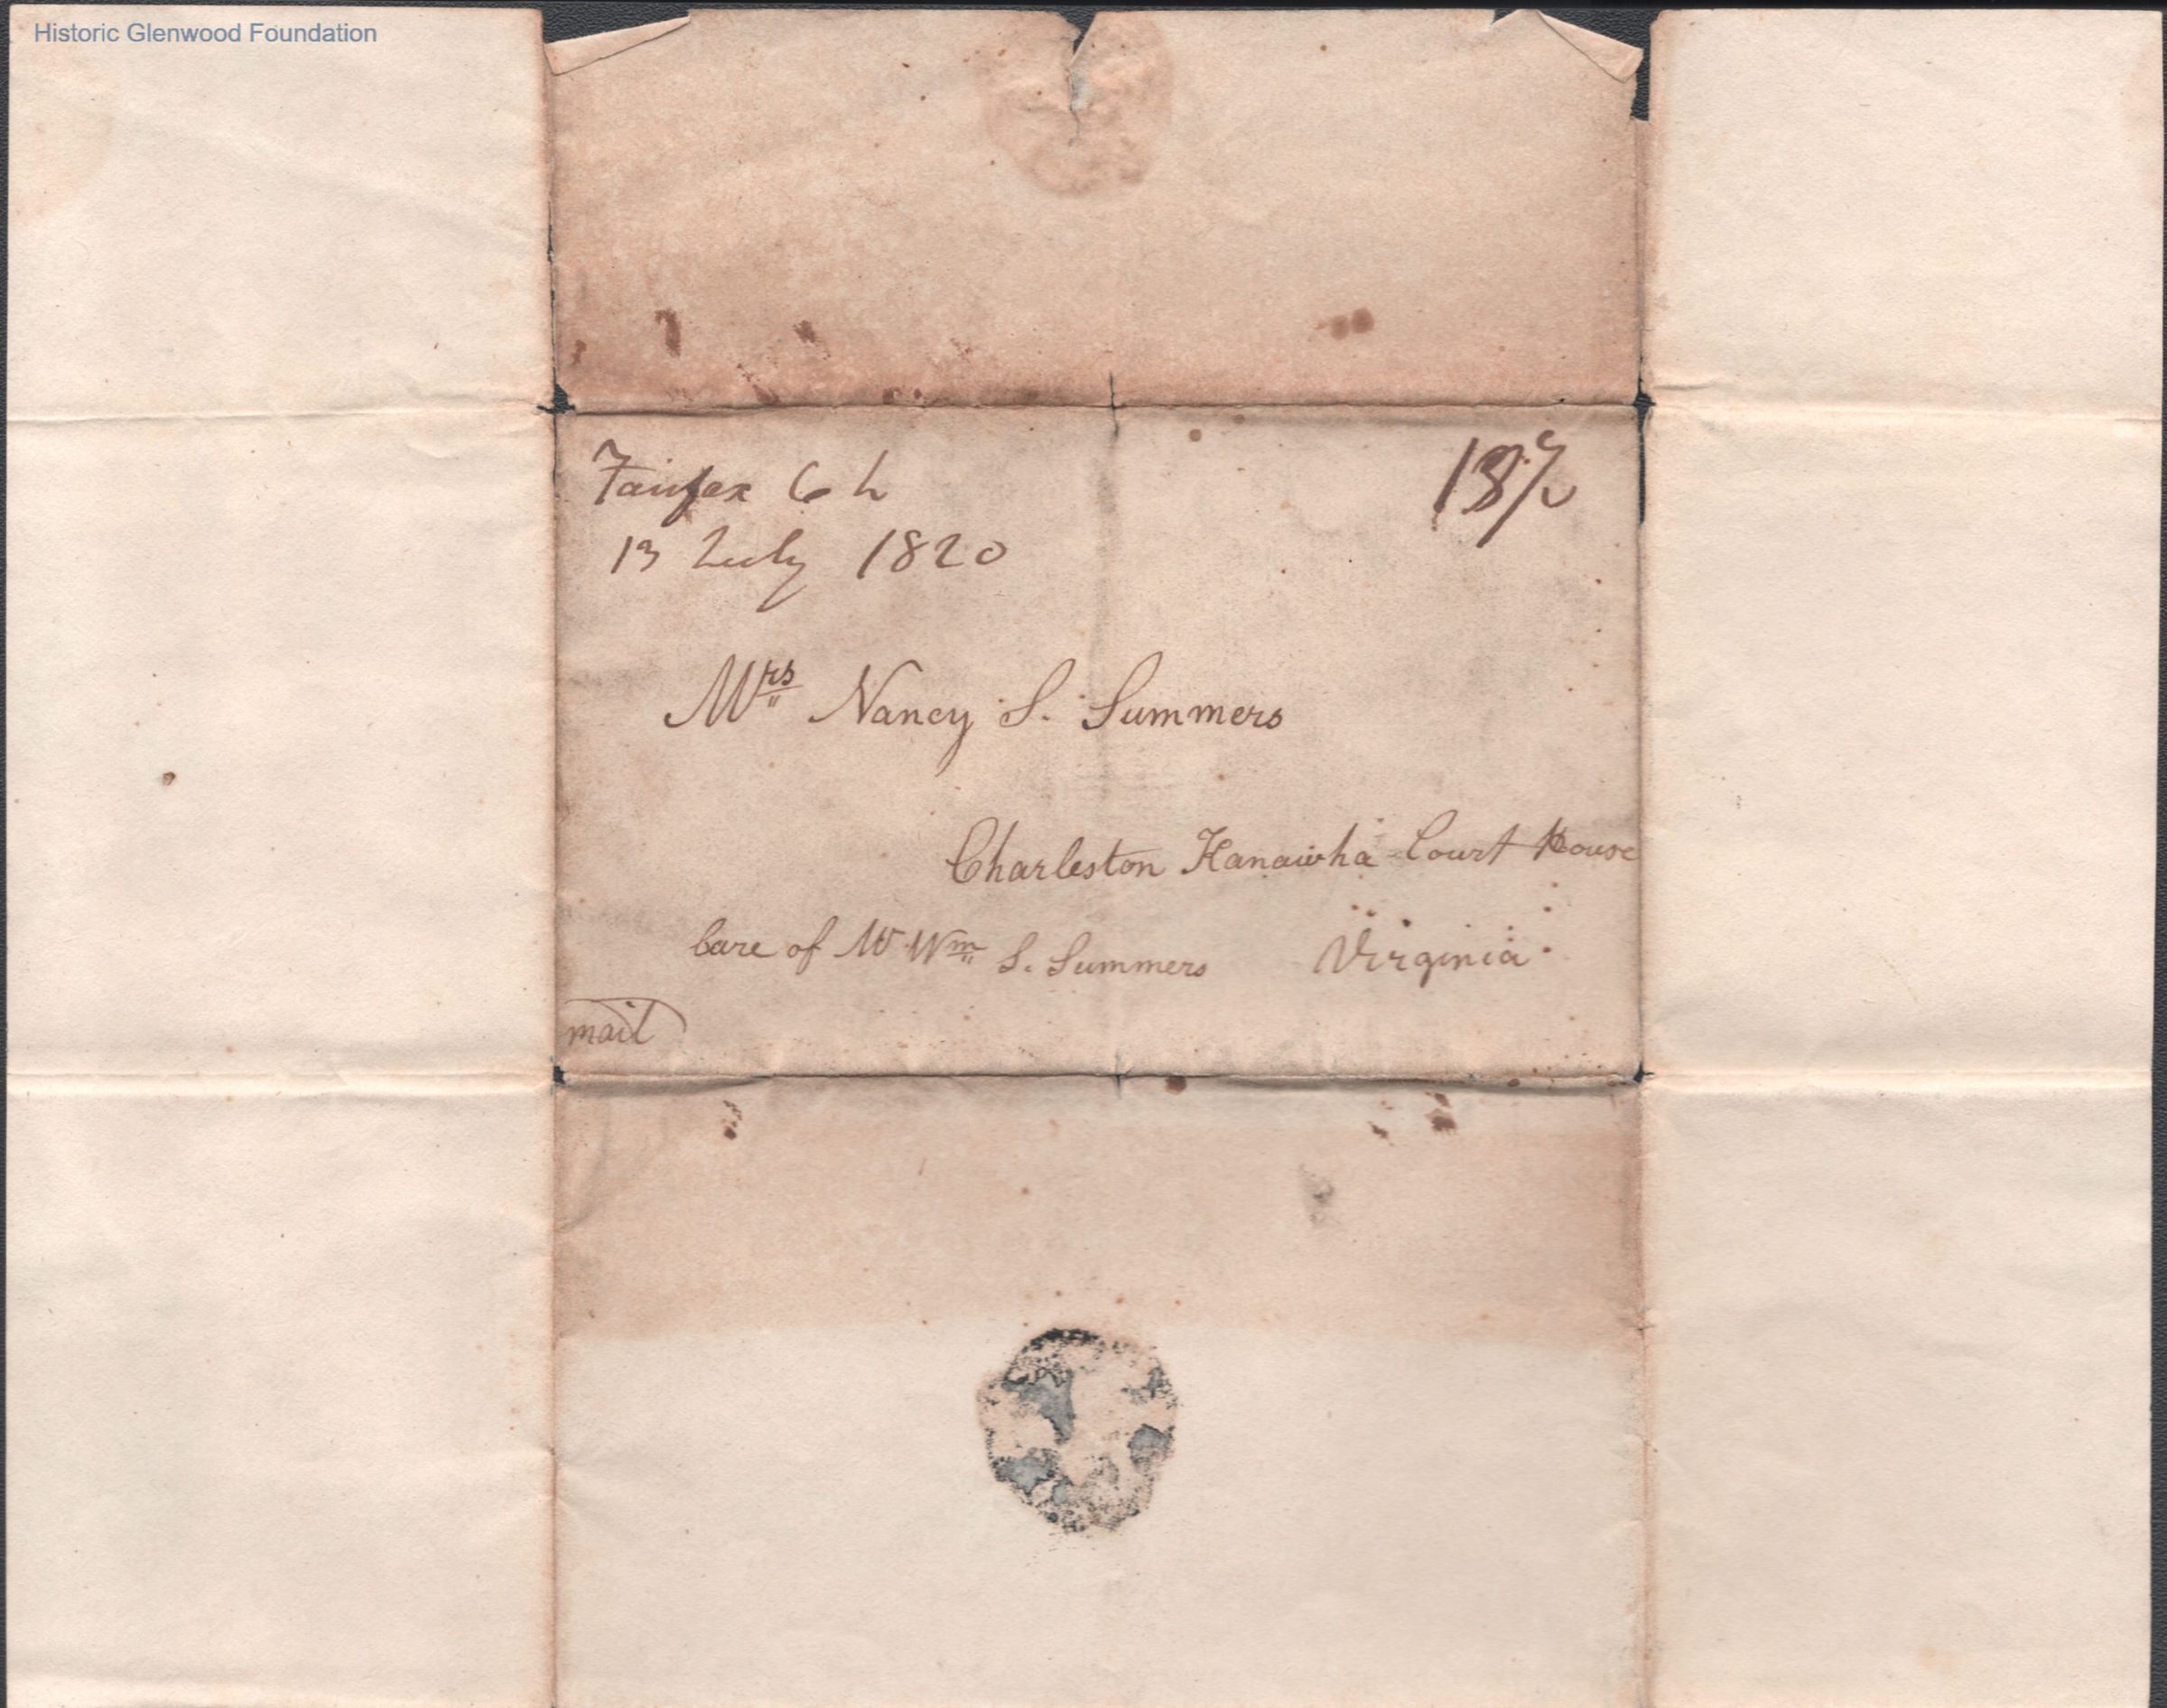 Historic Glenwood Foundation
Fairfax C h
18½
13 July 1820
Mrs Nancy S. Summers
Charleston Kanawha Court House
Care of Mr Wm S. Summers Virginia
mail